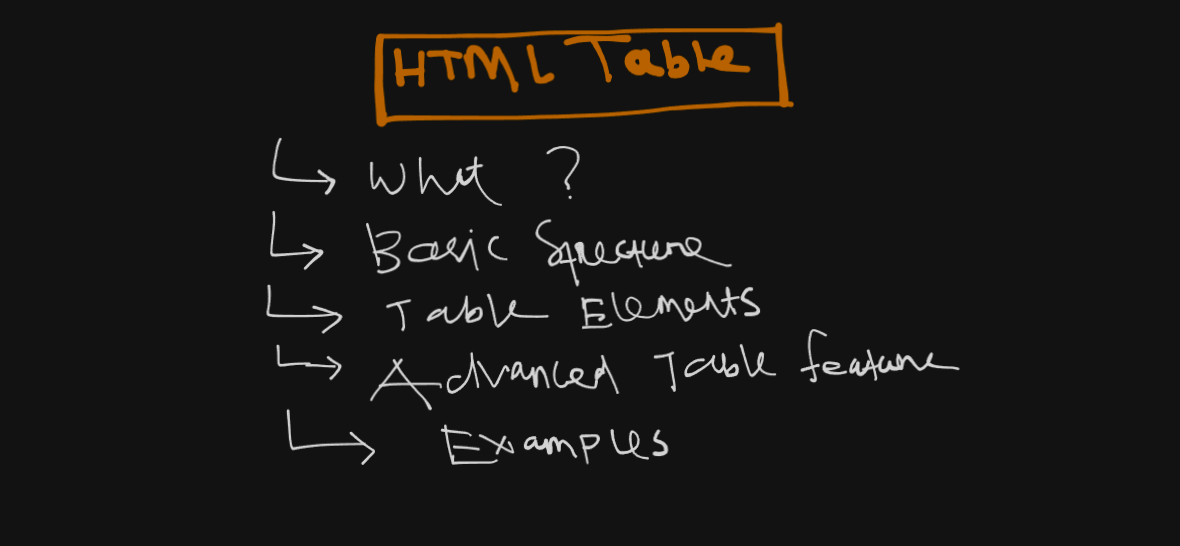 HTML Table
What ?
Basic Structure
Table Elements
Advanced Table feature
Examples